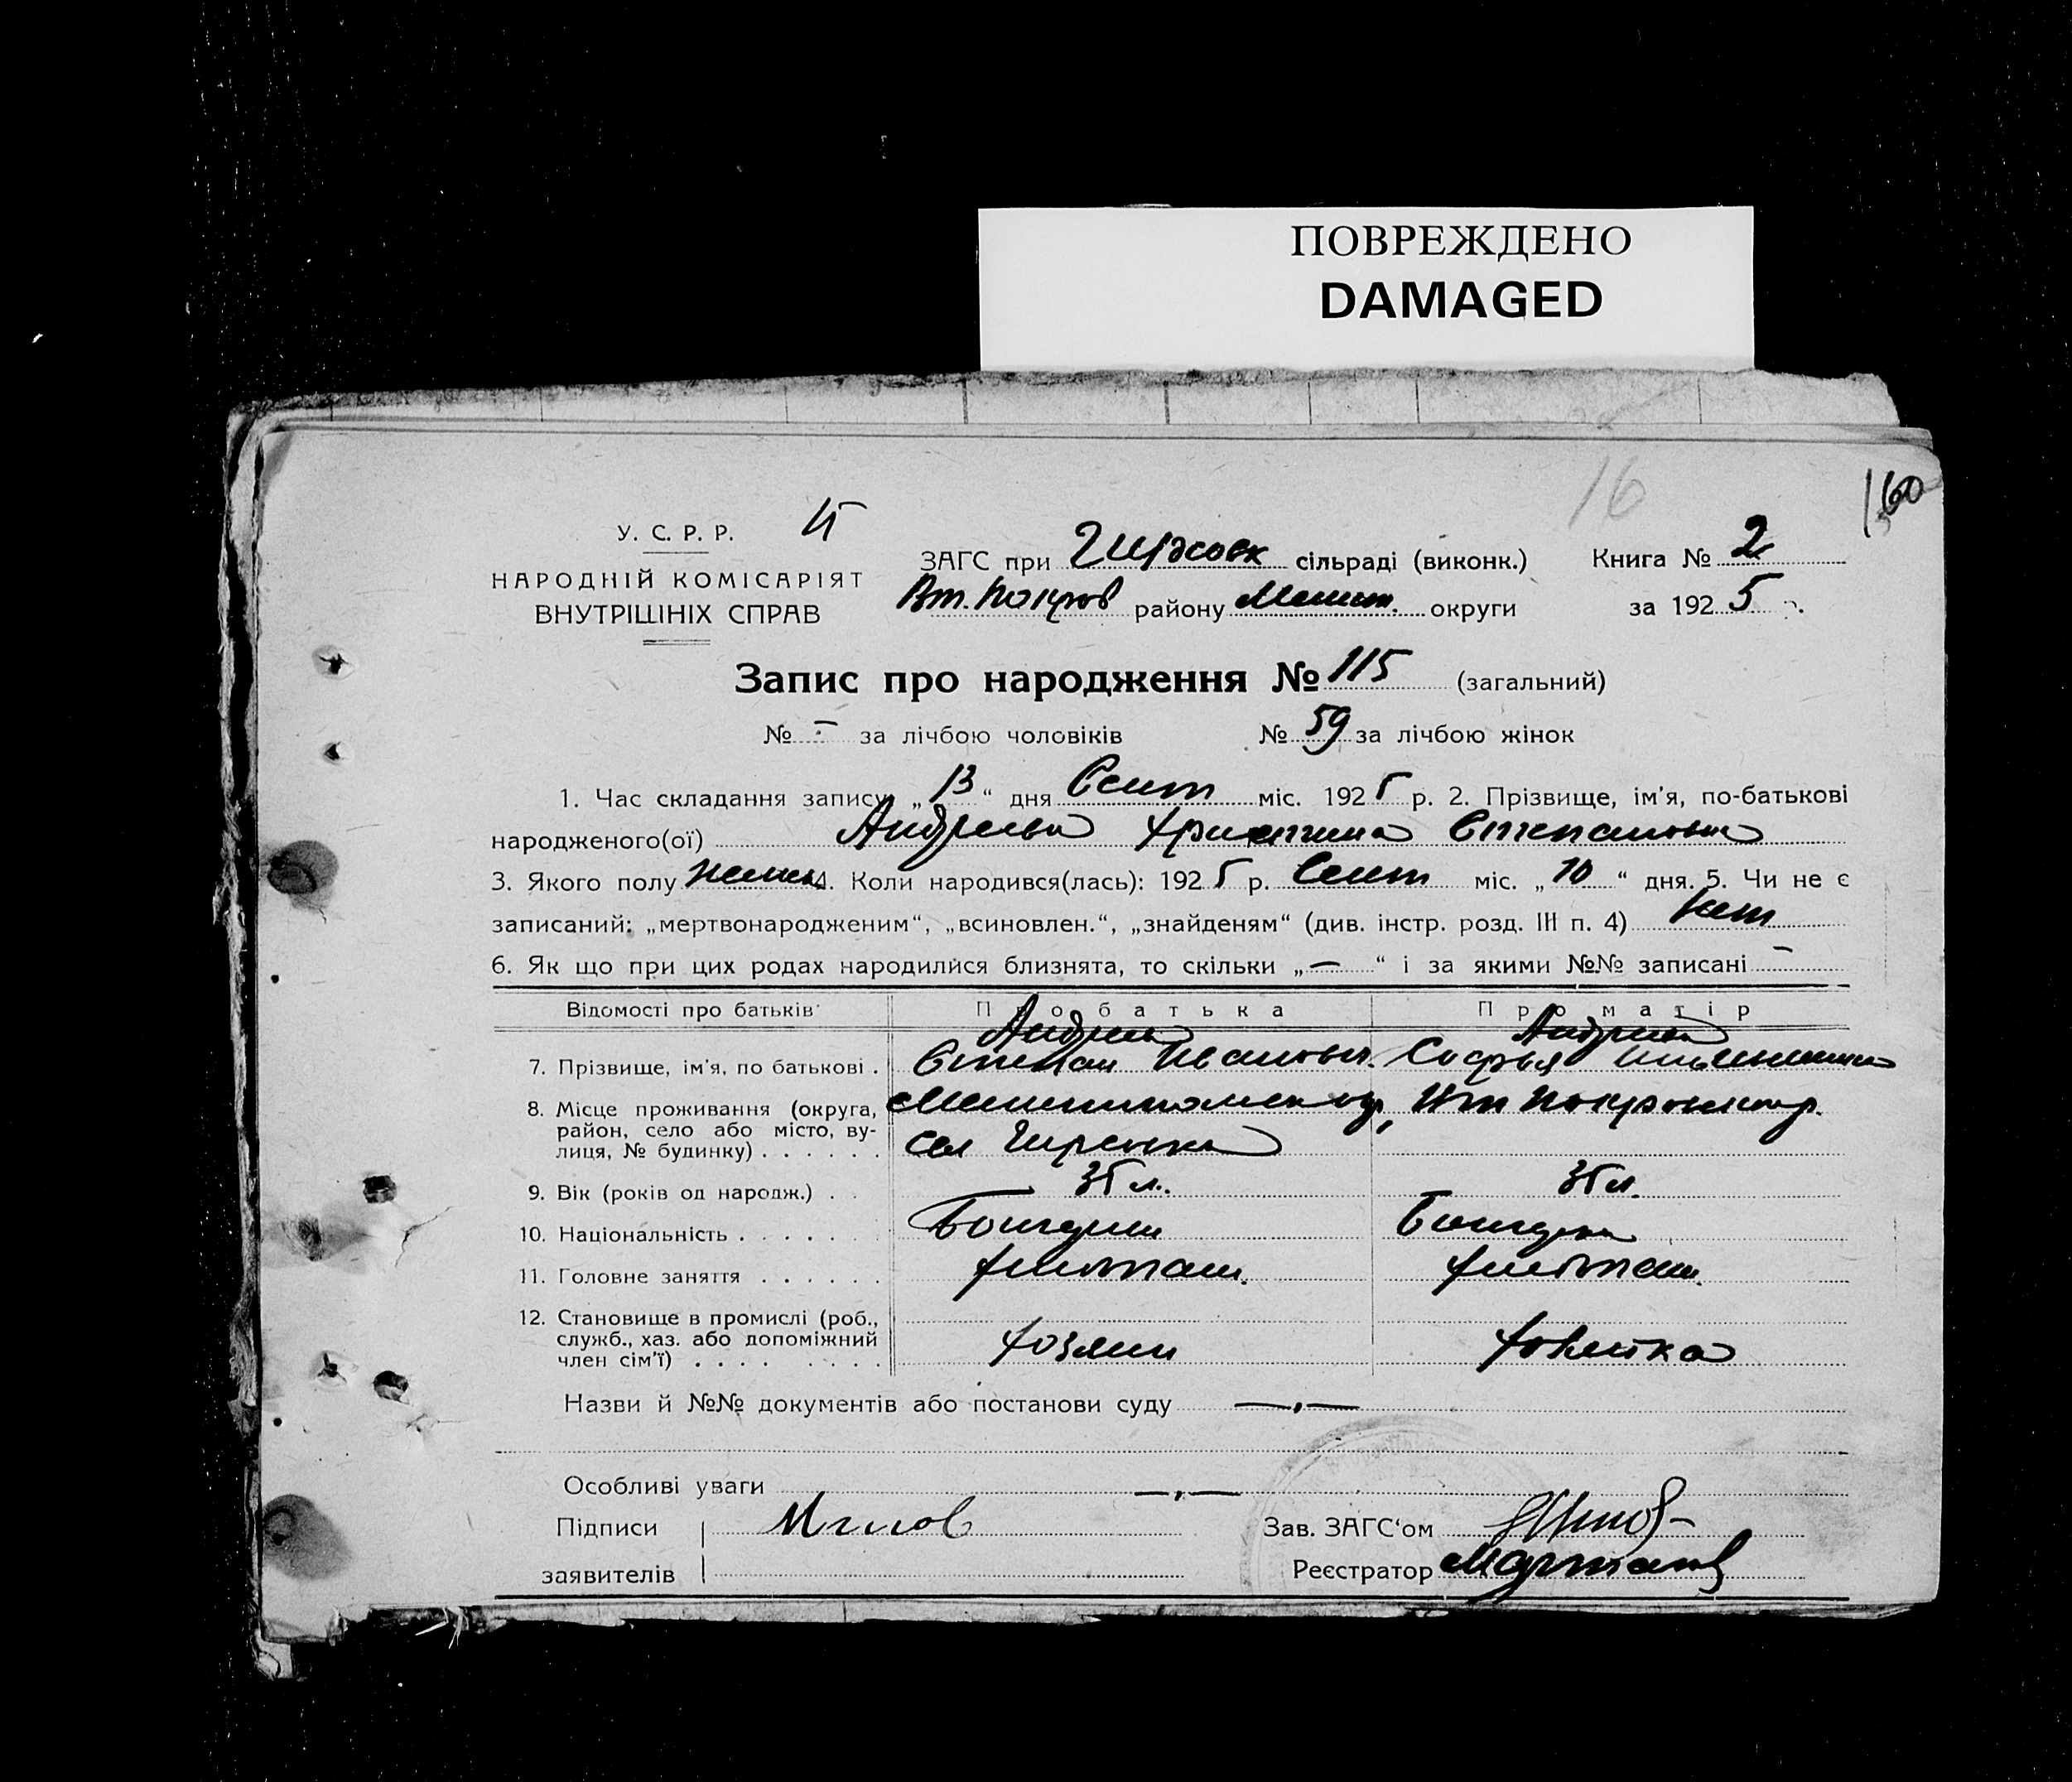 ПОВРЕЖДЕНО
DAMAGED
16
160
У. С. Р. Р.
НАРОДНІЙ КОМІСАРІЯТ
ВНУТРІШНІХ СПРАВ
ЗАГС при Гиржовк сільраді (виконк.) Книга № 2
Вт. Покров району Мелит. округи за 1925 р.
Запис про народження № 115 (загальний)
№ - за лічбою чоловіків № 59 за лічбою жінок
1. Час складання запису „13“ дня Сент міс. 1925 р. 2. Прізвище, ім'я, по-батькові
народженого(ої) Андреева Христина Степановна
3. Якого полу женск 4. Коли народився(лась): 1925 р. Сент міс. „10“ дня. 5. Чи не є
записаний: „мертвонародженим“, „всиновлен.“, „знайденям“ (див. інстр. розд. III п. 4) Нет
6. Як що при цих родах народилися близнята, то скільки „—“ і за якими №№ записані -
Відомості про батьків Про батька Про матір
7. Прізвище, ім'я, по батькові . Андреев Степан Иванович Андреева Софья
8. Місце проживання (округа, район, село або місто, вулиця, № будинку) . . . . . .
сел
9. Вік (років од народж.) . . 35 л. 35 л.
10. Національність . . . . . Болгарин Болгарка
11. Головне заняття . . . . . . хлебопаш. хлебопаш.
12. Становище в промислі (роб., служб., хаз. або допоміжний член сім'ї) . . . . . . . . хозяин хозяйка
Назви й №№ документів або постанови суду —,—
Особливі уваги —,—
Підписи Зав. ЗАГС'ом
заявителів Реєстратор